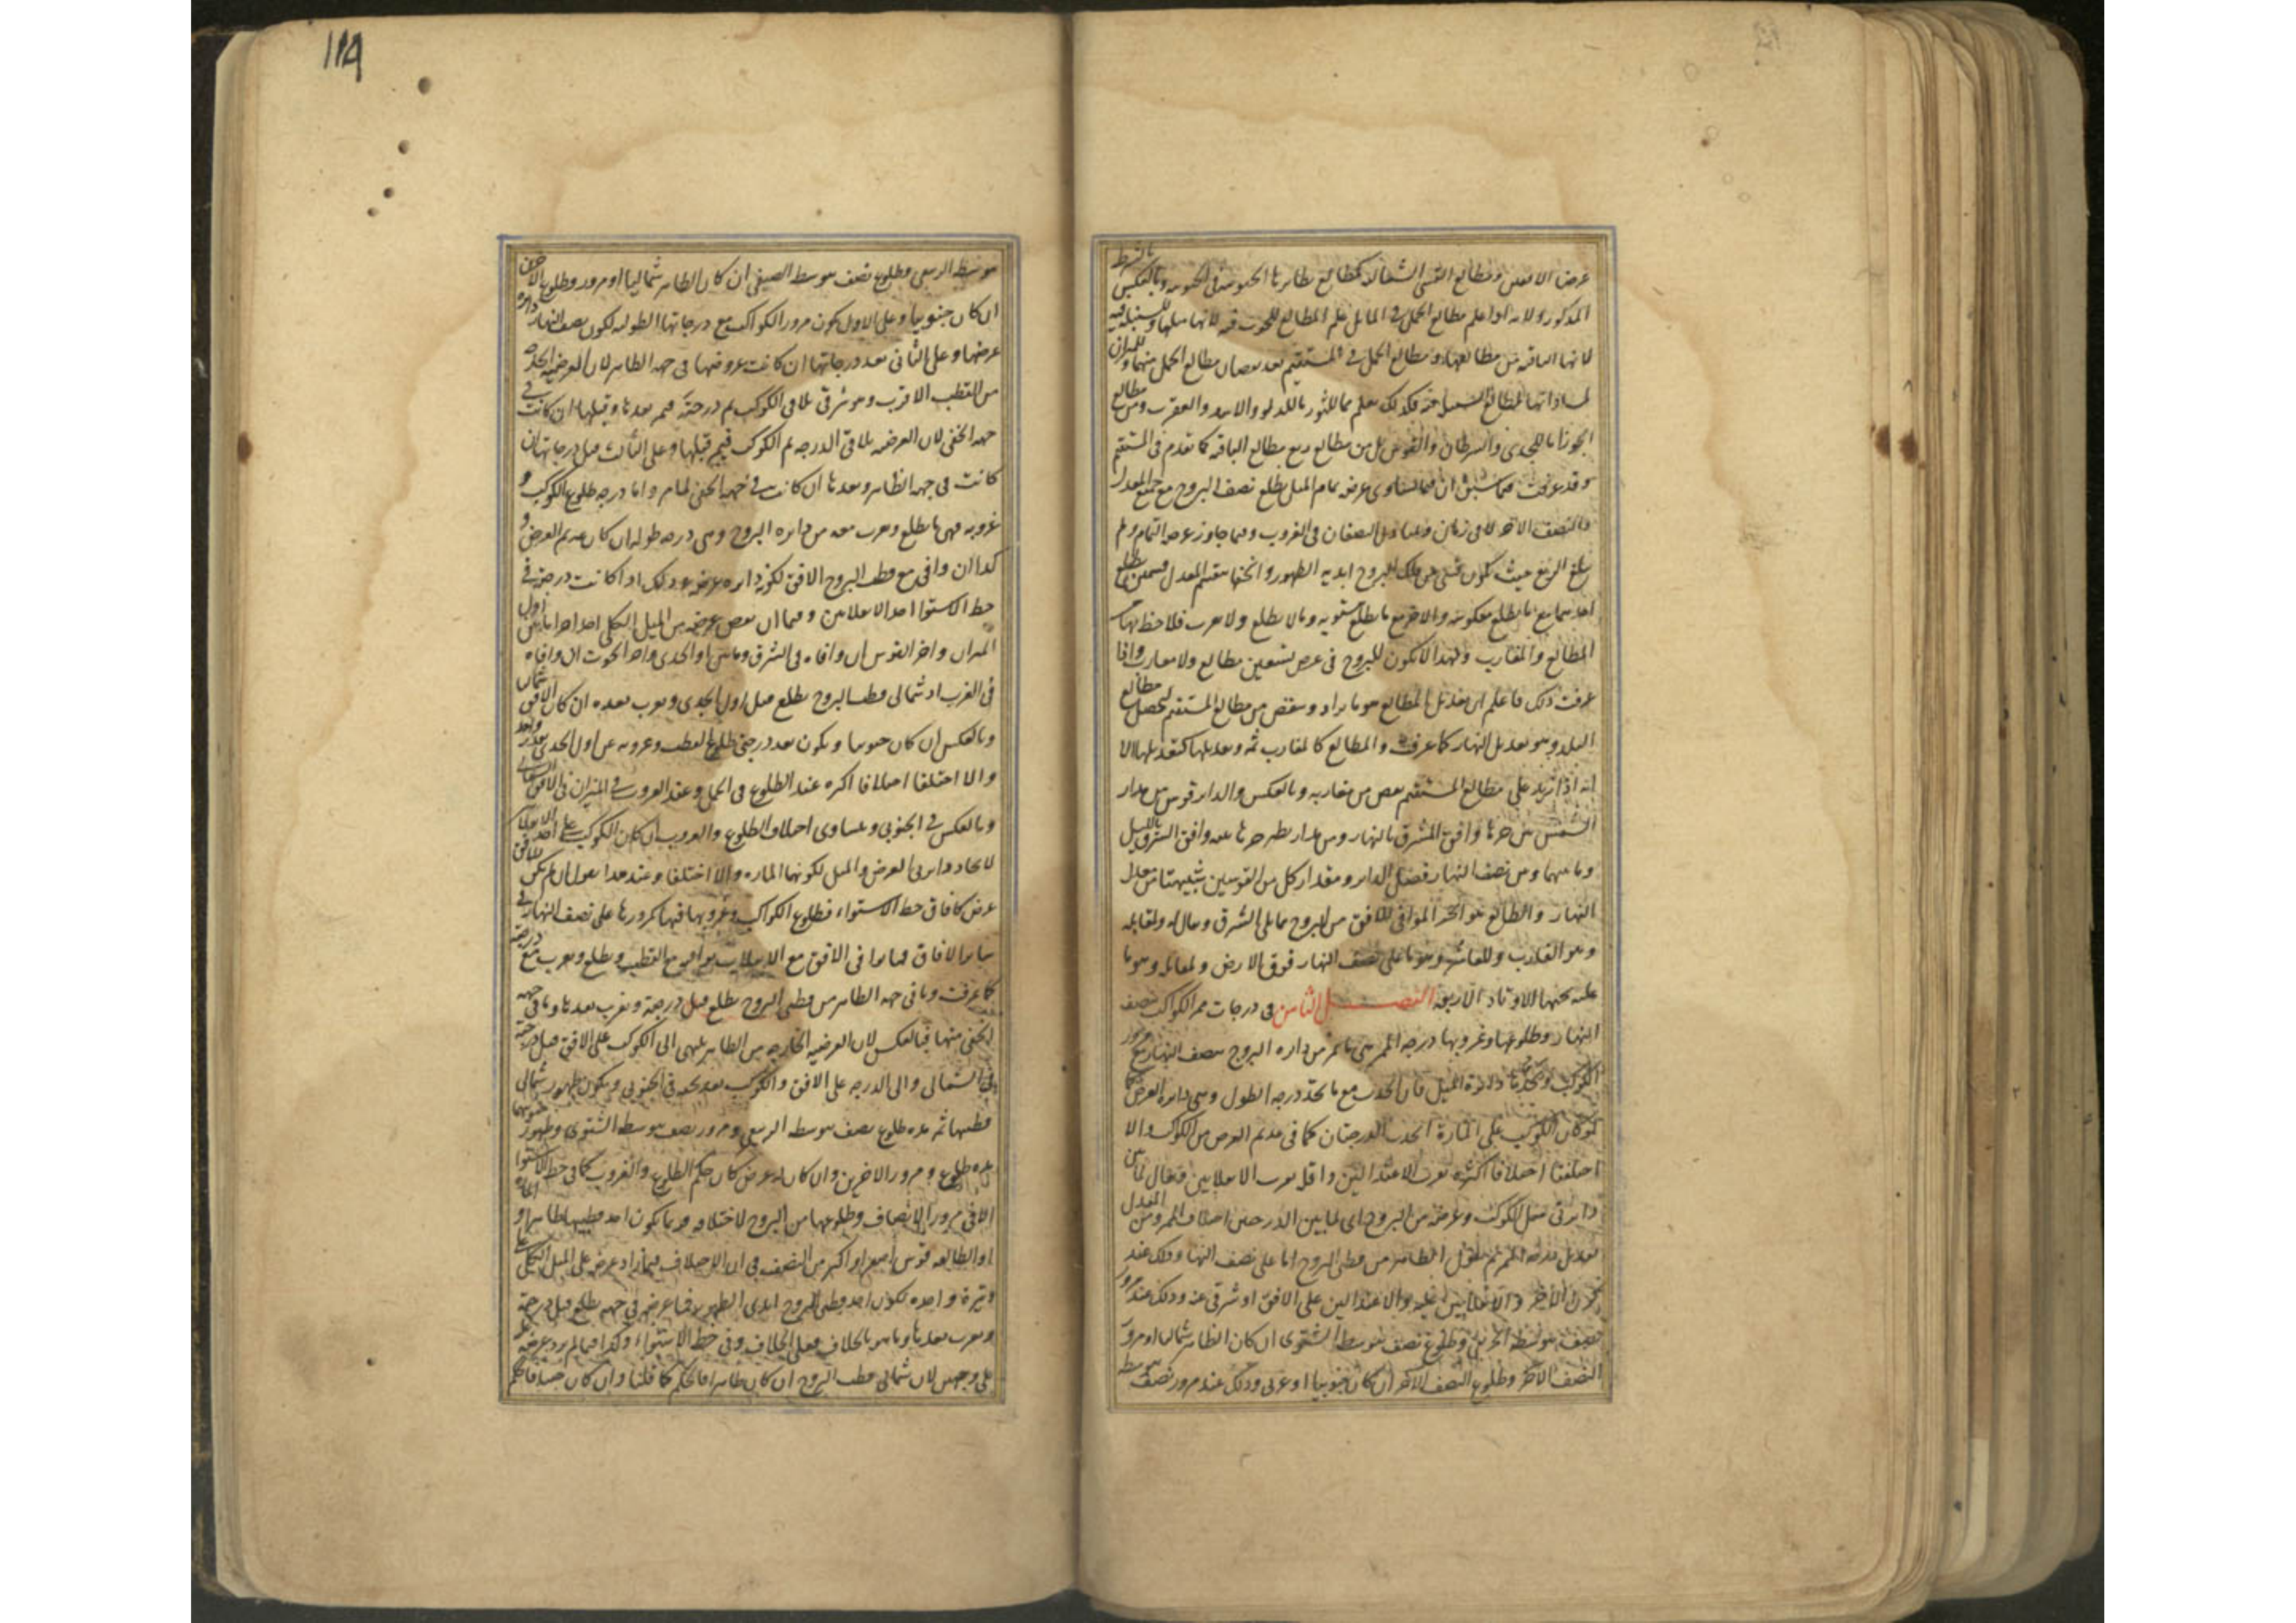 عرض الافقين ومطالع القسى الشمالية كمطالع نظائرها الجنوبية فى الجنوبية وبالعكس بالشرط
المذكور ولانه اذا علم مطالع الحمل فى المائل علم المطالع للحوت فيه لانها مثلها وللسنبلة فيه
لانها الباقية من مطالعها و مطالع الحمل فى المستقيم بعد نقصان مطالع الحمل منهما وللميزان
فكذلك نعلم مما للثور ما للدلو والاسد والعقرب ومن مطالع
الجوزا ما للجدى والسرطان والقوس بل من مطالع ربع مطالع الباقية كما تقدم فى المستقيم
وقد عرفت مما سبق ان فيما يساوى عرضه تمام الميل يطلع نصف البروج مع جميع المعدل
والنصف الاخر لا فى زمان ويتبادل النصفان فى الغروب وفيما جاوز عرضه التمام ولم
يبلغ الربع حيث تكون قسى من فلك البروج ابدية الظهور والخفا ينقسم المعدل قسمين يطلع
احدهما مع ما يطلع معكوسة والاخر مع ما يطلع مستوية وما لا يطلع ولا يغرب فلا حظ لها من
المطالع والمغارب ولهذا لا يكون للبروج فى عرض تسعين مطالع ولا مغارب واذا
عرفت ذلك فاعلم ان تعديل المطالع هو ما يزاد وينقص من مطالع المستقيم ليحصل مطالع
البلد وهو تعديل النهار كما عرفت والمطالع كالمغارب ثمه وتعديلها كتعديلها الا
انه اذا زيد على مطالع المستقيم نقص من مغاربه وبالعكس والدائر قوس من مدار
الشمس بين جزئها وافق المشرق بالنهار ومن مدار نظير جزئها بينه وافق الشرق بالليل
وما بينهما وبين نصف النهار فضل الدائر ومقدار كل من القوسين شبيهتها من معدل
النهار والطالع هو الجزء الموافى للافق من البروج مما يلى الشرق ويقال له ولمقابله
وهو الغارب وللعاشر وهو ما على نصف النهار فوق الارض ولمقابله وهو ما
عليه تحتها الاوتاد الاربعة الفصل الثامن فى درجات ممر الكواكب بنصف
النهار وطلوعها وغروبها درجة الممر هى ما يمر من دائرة البروج بنصف النهار مع مرور
الكوكب وتحدها دائرة الميل فان اتحدت مع ما تحد درجة الطول وهى دائرة العرض كما
لو كان الكوكب على المارة اتحدت الدرجتان كما فى عديم العرض من الكواكب والا
اختلفتا اختلافا اكثره بقرب الاعتدالين واقله بقرب الانقلابين فيقال لما بين
دائرتى ميل الكوكب وعرضه من البروج اى لما بين الدرجتين اختلاف الممر ومن المعدل
تعديل درجة الممر ثم نقول الظاهر من قطبى البروج اما على نصف النهار وذلك عند
والانقلابين عليه والاعتدالين على الافق او شرقى عنه وذلك عند مرور
نصف يتوسطه الخريفى وطلوع نصف يتوسطه الشتوى ان كان الظاهر شماليا او مرور
النصف الاخر وطلوع النصف الاخر ان كان جنوبيا او غربى وذلك عند مرور نصف يتوسطه
119
يتوسطه الربيعى وطلوع نصف يتوسطه الصيفى ان كان الظاهر شماليا او مرور وطلوع الاخرين
ان كان جنوبيا وعلى الاول يكون مرور الكواكب مع درجاتها الطولية لكون نصف النهار دائرة
عرضها وعلى الثانى بعد درجاتها ان كانت عروضها فى جهة الظاهر لان العرضية الخارجة
من القطب الاقرب وهو شرقى تلاقى الكوكب ثم درجته فيمر بعدها وقبلها ان كانت فى
جهة الخفى لان العرضية تلاقى الدرجة ثم الكوكب فيمر قبلها وعلى الثالث قبل درجاتها ان
كانت فى جهة الظاهر وبعدها ان كانت فى جهة الخفى لما مر واما درجة طلوع الكوكب و
غروبه فهى ما يطلع ويغرب معه من دائرة البروج وهى درجة طوله ان كان عديم العرض و
كذا ان وافى مع قطب البروج الافق لكونه دائرة عرضه وذلك اذا كانت درجته فى
خط الاستوا احد الانقلابين وفيما نقص عرضه من الميل الكلى احد اجزا ما بين اول
الميزان واخر القوس ان وافاه فى الشرق وما بين اول الجدى واخر الحوت ان وافاه
فى الغرب اذ شمالى قطب البروج يطلع قبل اول الجدى ويغرب بعده ان كان الافق شماليا
وبالعكس ان كان جنوبيا ويكون بعد درجتى طلوع القطب وغروبه عن اول الجدى
والا اختلفا اختلافا اكثره عند الطلوع فى الحمل وعند الغروب فى الميزان فى الافق الشمالى
وبالعكس فى الجنوبى ويتساوى اختلاف الطلوع والغروب ان كان الكوكب على احد الانقلابين
لاتحاد دائرتى العرض والميل لكونهما المارة والا اختلفا وعند هذا نقول ان لم يكن للافق
عرض كافاق خط الاستواء فطلوع الكواكب وغروبها فيها كمرورها على نصف النهار فى
سائر الافاق فما يوافى الافق مع الانقلابين يوافى مع القطب ويطلع ويغرب مع درجته
كما عرفت وما فى جهة الظاهر من قطبى البروج يطلع قبل درجته ويغرب بعدها وما فى جهة
الخفى منهما فبالعكس لان العرضية الخارجة من الظاهر تنتهى الى الكوكب على الافق قبل درجته
فى الشمالى والى الدرجة على الافق والكوكب بعد تحته فى الجنوبى ويكون ظهور شمالى
قطبيها ثمه مدة طلوع نصف يتوسطه الربيعى ومرور نصف يتوسطه الشتوى وظهور جنوبيهما
مدة طلوع ومرور الاخرين وان كان له عرض كان حكم الطلوع والغروب كما فى خط الاستوا
الا فى مرور الانصاف وطلوعها من البروج لاختلافه
او الطالعة قوس اصغر او اكبر من النصف فى ان الاختلاف فيما زاد عرضه على الميل الكلى على
وتيرة واحدة لكون احد قطبى البروج ابدى الظهور فما عرضه فى جهته يطلع قبل درجته
ويغرب بعدها وما هو بالخلاف فعلى الخلاف وفى خط الاستواء وكذا فيما لم يزد عرضه
على وجهين لان شمالى قطب البروج ان كان ظاهرا فالحكم كما قلنا وان كان خفيا فالحكم